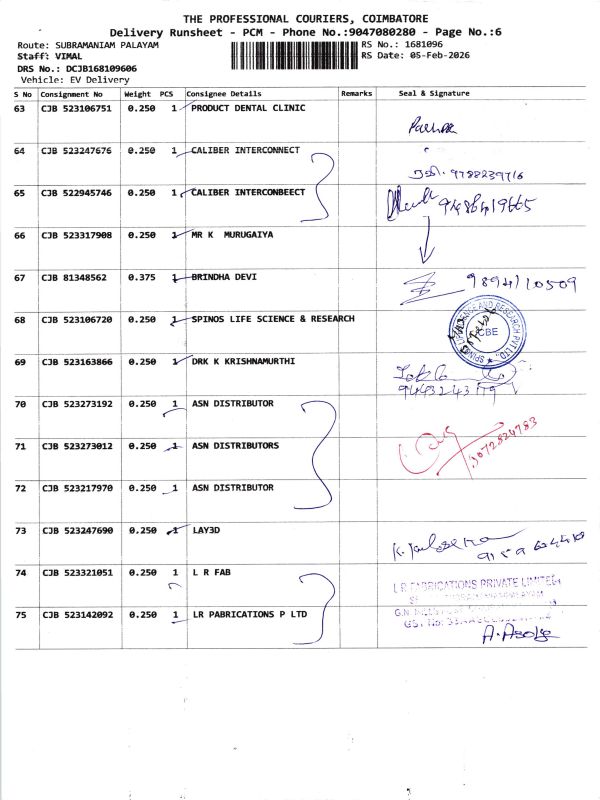 THE PROFESSIONAL COURIERS, COIMBATORE
Delivery Runsheet - PCM - Phone No.:9047080280 - Page No.:6
Route: SUBRAMANIAM PALAYAM
RS No.: 1681096
Staff: VIMAL
RS Date: 05-Feb-2026
DRS No.: DCJB168109606
Vehicle: EV Delivery
S No Consignment No Weight PCS Consignee Details Remarks Seal & Signature
63 CJB 523106751 0.250 1 PRODUCT DENTAL CLINIC
64 CJB 523247676 0.250 1 CALIBER INTERCONNECT 9788239716
65 CJB 522945746 0.250 1 CALIBER INTERCONBEECT 9486419665
66 CJB 523317908 0.250 1 MR K MURUGAIYA
67 CJB 81348562 0.375 1 BRINDHA DEVI 9894110509
68 CJB 523106720 0.250 1 SPINOS LIFE SCIENCE & RESEARCH CBE
69 CJB 523163866 0.250 1 DRK K KRISHNAMURTHI
70 CJB 523273192 0.250 1 ASN DISTRIBUTOR
71 CJB 523273012 0.250 1 ASN DISTRIBUTORS 8072824783
72 CJB 523217970 0.250 1 ASN DISTRIBUTOR
73 CJB 523247690 0.250 1 LAY3D
74 CJB 523321051 0.250 1 L R FAB
L R FABRICATIONS PRIVATE LIMITED
75 CJB 523142092 0.250 1 LR PABRICATIONS P LTD
A. Asolje